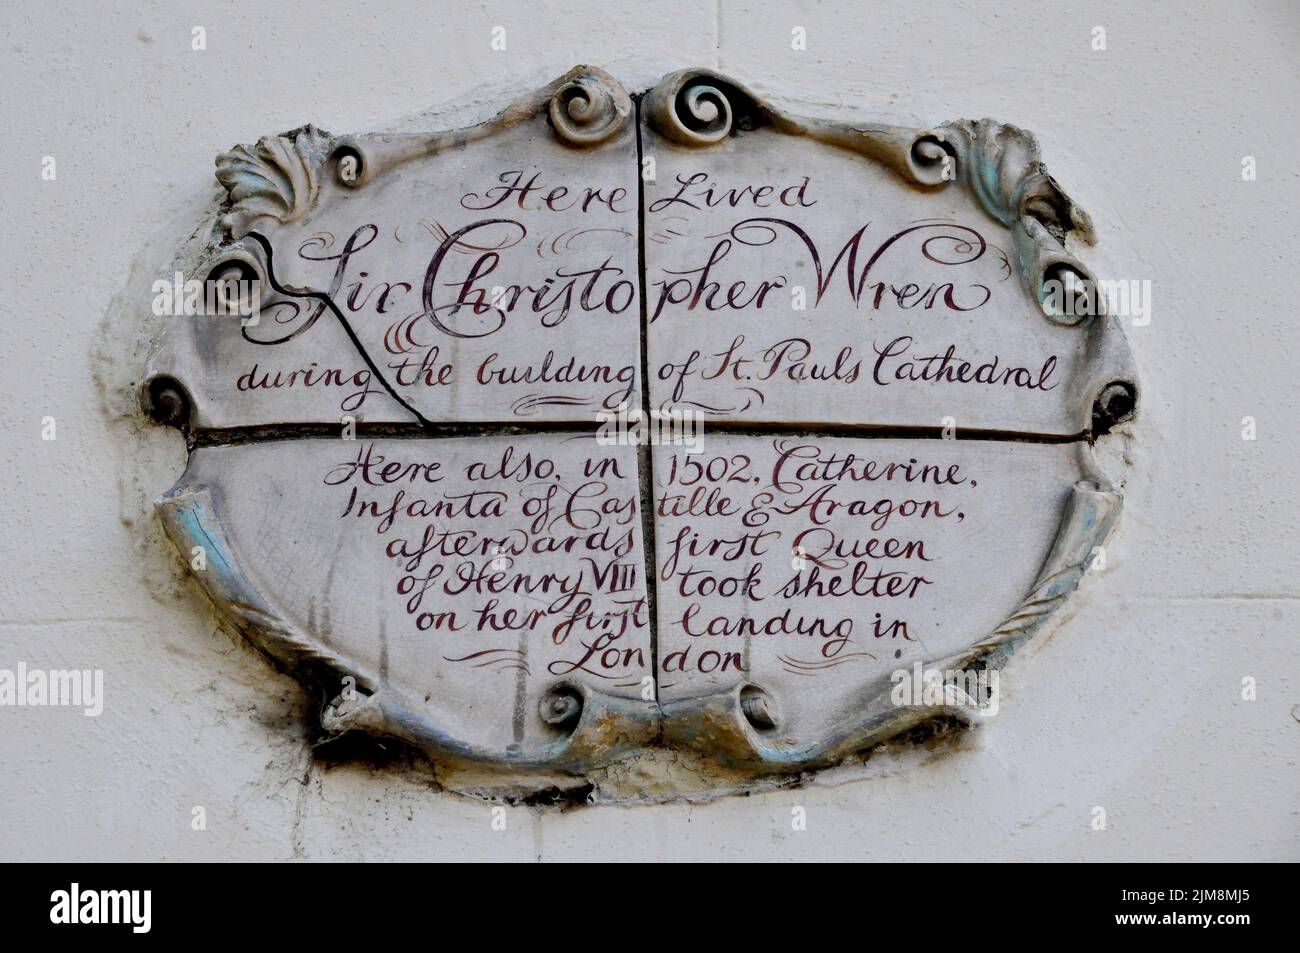 Here Lived
Sir Christopher Wren
during the building of St. Pauls Cathedral
Here also, in 1502, Catherine,
Infanta of Castille & Aragon,
afterwards first Queen
of Henry VIII took shelter
on her first landing in
London
a
alamy
Image ID: 2JM8MJ5
www.alamy.com